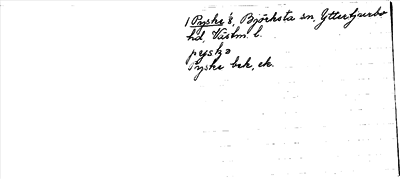 1 Pyske 8, Björksta sn, Yttertjurbo
hd, Västm. l.
pyskə
Pyske bek, ek.